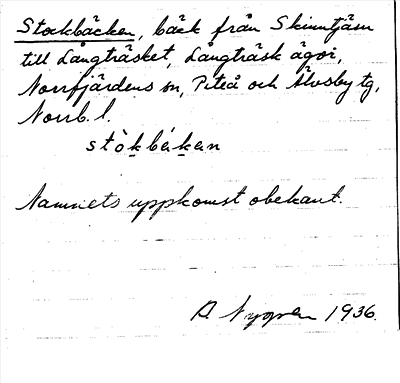 Stockbäcken, bäck från Skinntjäsn
till Långträsket, Långträsk ägor,
Norrfjärdens sn, Piteå och Älvsby tg,
Norrb. l.
stòkbékan
Namnets uppkomst obekant.
A. Nygren 1936.